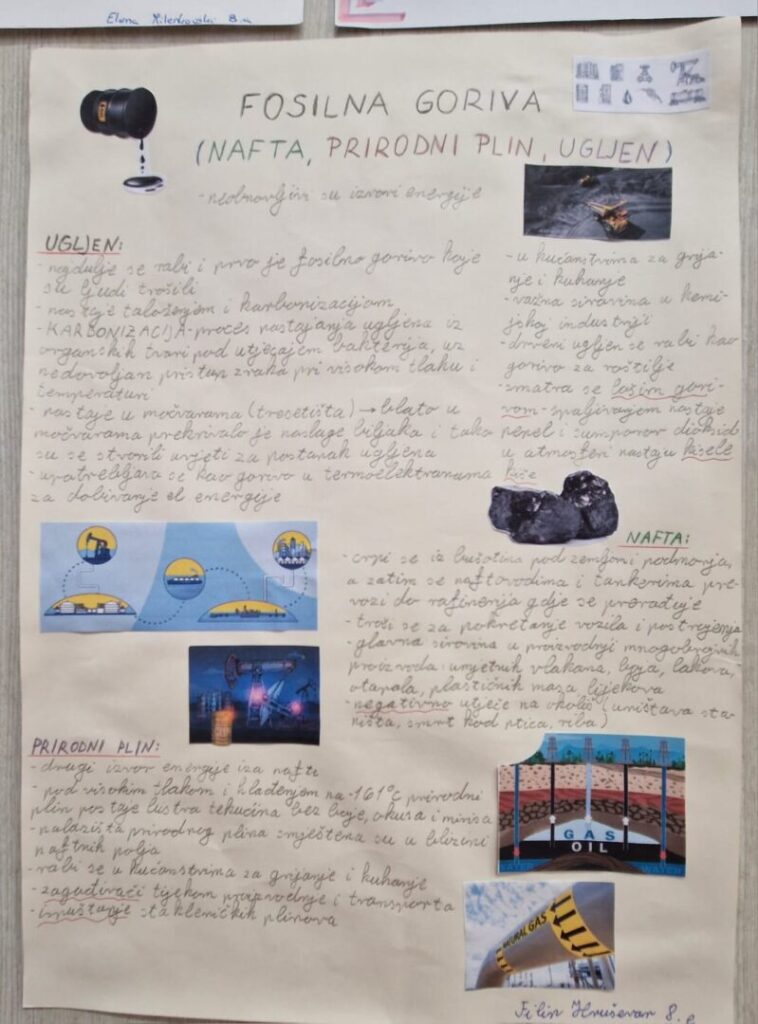 Elena
8.a
FOSILNA GORIVA
(NAFTA, PRIRODNI PLIN, UGLJEN)
- neobnovljivi su izvori energije
UGLJEN:
- najdulje se rabi i prvo je fosilno gorivo koje
su ljudi trošili
- nastaje taloženjem i karbonizacijom
- KARBONIZACIJA - proces nastajanja ugljena iz
organskih tvari pod utjecajem bakterija, uz
nedovoljan pristup zraka pri visokom tlaku i
temperaturi
- nastaje u močvarama (tresetišta) → blato u
močvarama prekrivalo je naslage biljaka i tako
su se stvorili uvjeti za postanak ugljena
- upotrebljava se kao gorivo u termoelektranama
za dobivanje el energije
- u kućanstvima za grija-
nje i kuhanje
- važna sirovina u kemi-
jskoj industriji
- drveni ugljen se rabi kao
gorivo za roštilje
- smatra se lošim gori-
vom - spaljivanjem nastaje
pepel i sumporov dioksid
u atmosferi nastaju kisele
kiše
NAFTA:
- crpi se iz bušotina pod zemljom i podmorja,
a zatim se naftovodima i tankerima pre-
vozi do rafinerija gdje se prerađuje
- troši se za pokretanje vozila i postrojenja
- glavna sirovina u proizvodnji mnogobrojnih
proizvoda: umjetnih vlakana, boja, lakova,
otapala, plastičnih masa, lijekova
- negativno utječe na okoliš (uništava sta-
ništa, smrt kod ptica, riba)
PRIRODNI PLIN:
- drugi izvor energije iza nafte
- pod visokim tlakom i hlađenjem na -161°C prirodni
plin postaje bistra tekućina bez boje, okusa i mirisa
- nalazišta prirodnog plina smještena su u blizini
naftnih polja
- rabi se u kućanstvima za grijanje i kuhanje
- zagađivači tijekom proizvodnje i transporta
- ispuštanje stakleničkih plinova
GAS
OIL
WATER
WATER
NATURAL GAS
Filip Hruševar 8.